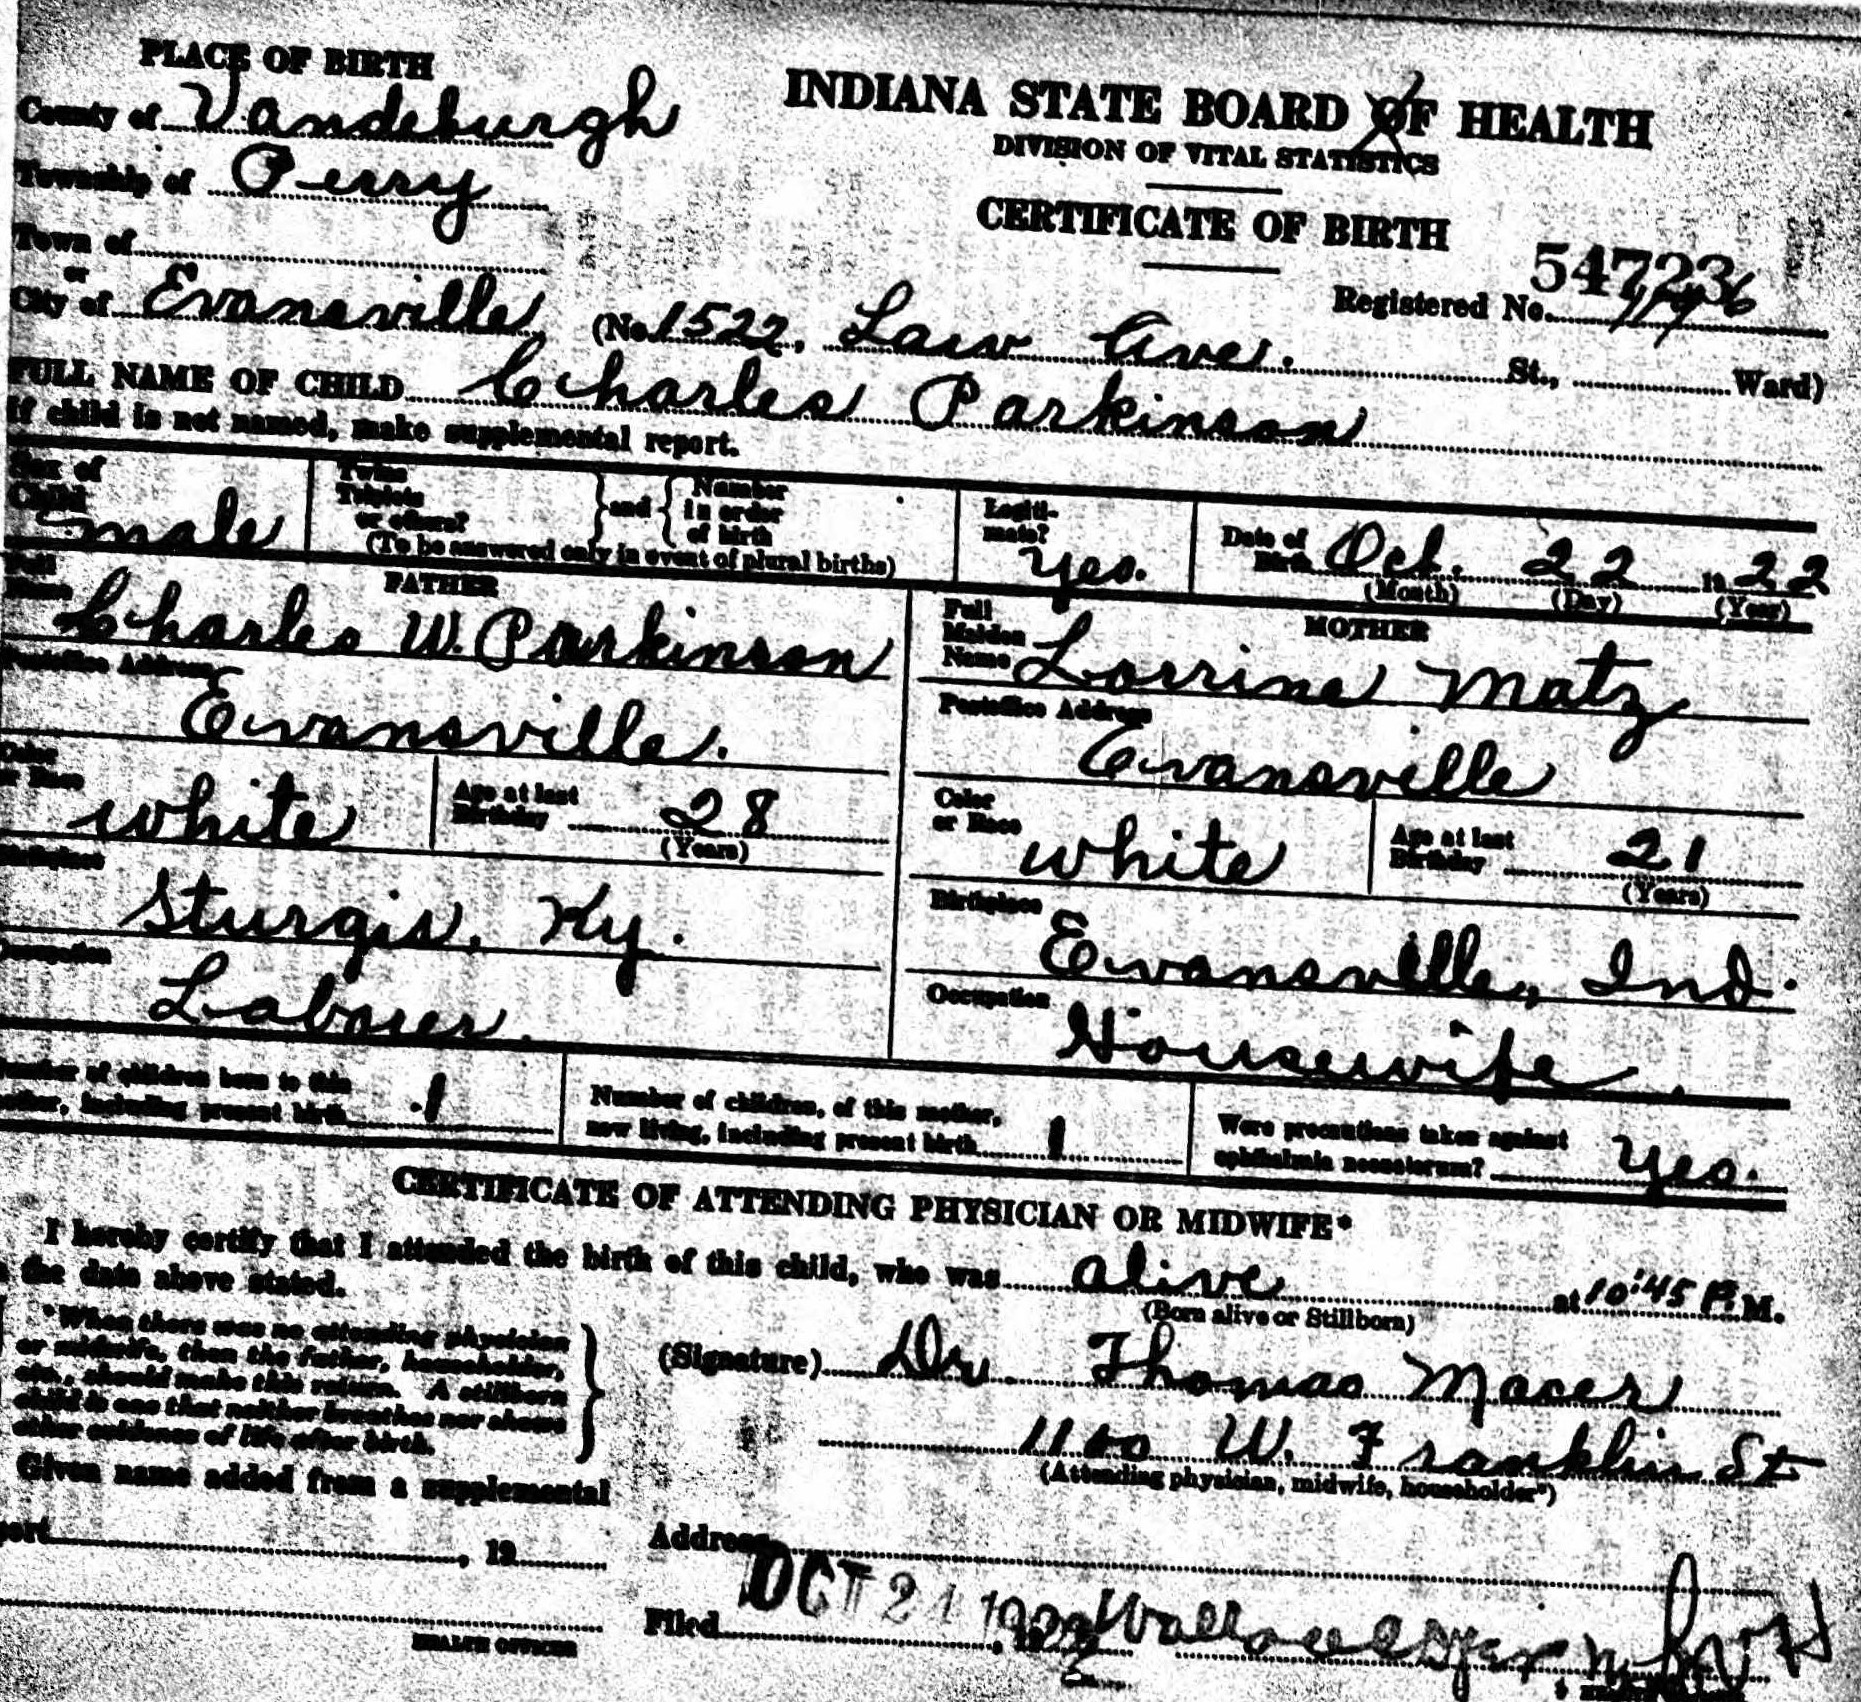 PLACE OF BIRTH
County of Vandeburgh
Township of Perry
Town of
or
City of Evansville (No. 1522, Law Ave. St., Ward)
INDIANA STATE BOARD OF HEALTH
DIVISION OF VITAL STATISTICS
CERTIFICATE OF BIRTH
54723
Registered No.
FULL NAME OF CHILD Charles Parkinson
If child is not named, make supplemental report.
Sex of Child male
Twins Triplets or others? and Number in order of birth
(To be answered only in event of plural births)
Legiti-mate? Yes.
Date of Birth Oct. 22 1922
(Month) (Day) (Year)
FATHER
Full Name Charles W. Parkinson
Postoffice Address
Evansville.
Color or Race white
Age at last Birthday 28
(Years)
Birthplace
Sturgis, Ky.
Occupation
Laborer.
MOTHER
Full Maiden Name Lorrine Matz
Postoffice Address
Evansville
Color or Race white
Age at last Birthday 21
(Years)
Birthplace
Evansville, Ind.
Occupation
Housewife.
Number of children born to this mother, including present birth 1
Number of children, of this mother, now living, including present birth 1
Were precautions taken against ophthalmia neonatorum? Yes.
CERTIFICATE OF ATTENDING PHYSICIAN OR MIDWIFE*
I hereby certify that I attended the birth of this child, who was alive at 10:45 P.M.
(Born alive or Stillborn)
the date above stated.
*When there was no attending physician
or midwife, then the father, householder,
etc., should make this return. A stillborn
child is one that neither breathes nor shows
other evidence of life after birth.
(Signature) Dr. Thomas Macer
1100 W. Franklin St
(Attending physician, midwife, householder*)
Given name added from a supplemental
report , 19
HEALTH OFFICER
Address
Filed OCT 24 1922